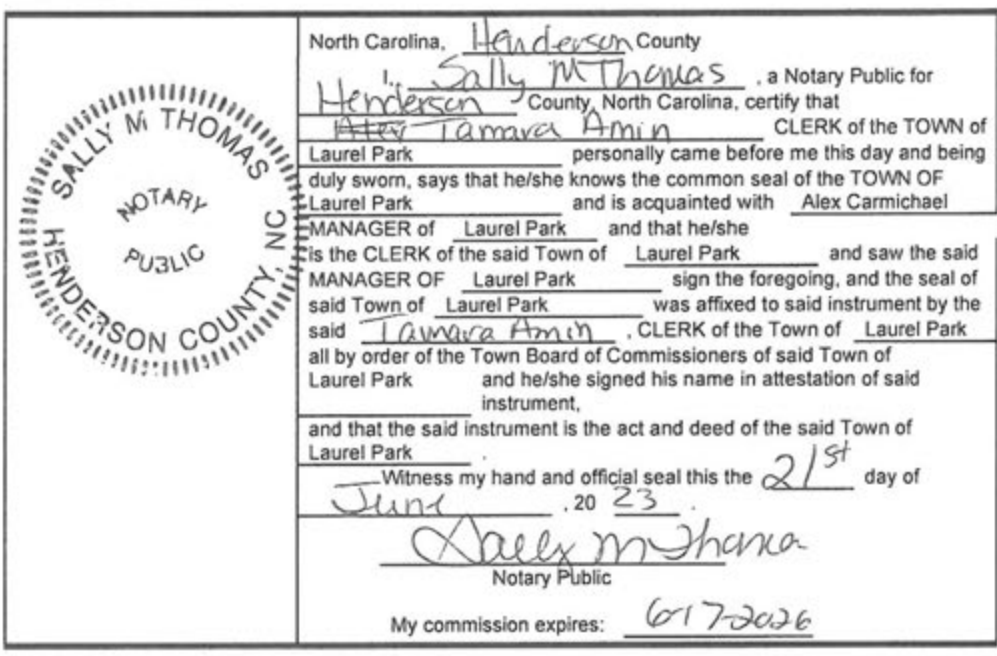 SALLY M THOMAS
NOTARY
PUBLIC
HENDERSON COUNTY, NC
North Carolina, Henderson County
I, Sally M Thomas, a Notary Public for
Henderson County, North Carolina, certify that
Alex Tamara Amin CLERK of the TOWN of
Laurel Park personally came before me this day and being
duly sworn, says that he/she knows the common seal of the TOWN OF
Laurel Park and is acquainted with Alex Carmichael
MANAGER of Laurel Park and that he/she
is the CLERK of the said Town of Laurel Park and saw the said
MANAGER OF Laurel Park sign the foregoing, and the seal of
said Town of Laurel Park was affixed to said instrument by the
said Tamara Amin, CLERK of the Town of Laurel Park
all by order of the Town Board of Commissioners of said Town of
Laurel Park and he/she signed his name in attestation of said
instrument,
and that the said instrument is the act and deed of the said Town of
Laurel Park.
Witness my hand and official seal this the 21st day of
June, 20 23.
Sally M Thomas
Notary Public
My commission expires: 6-17-2026